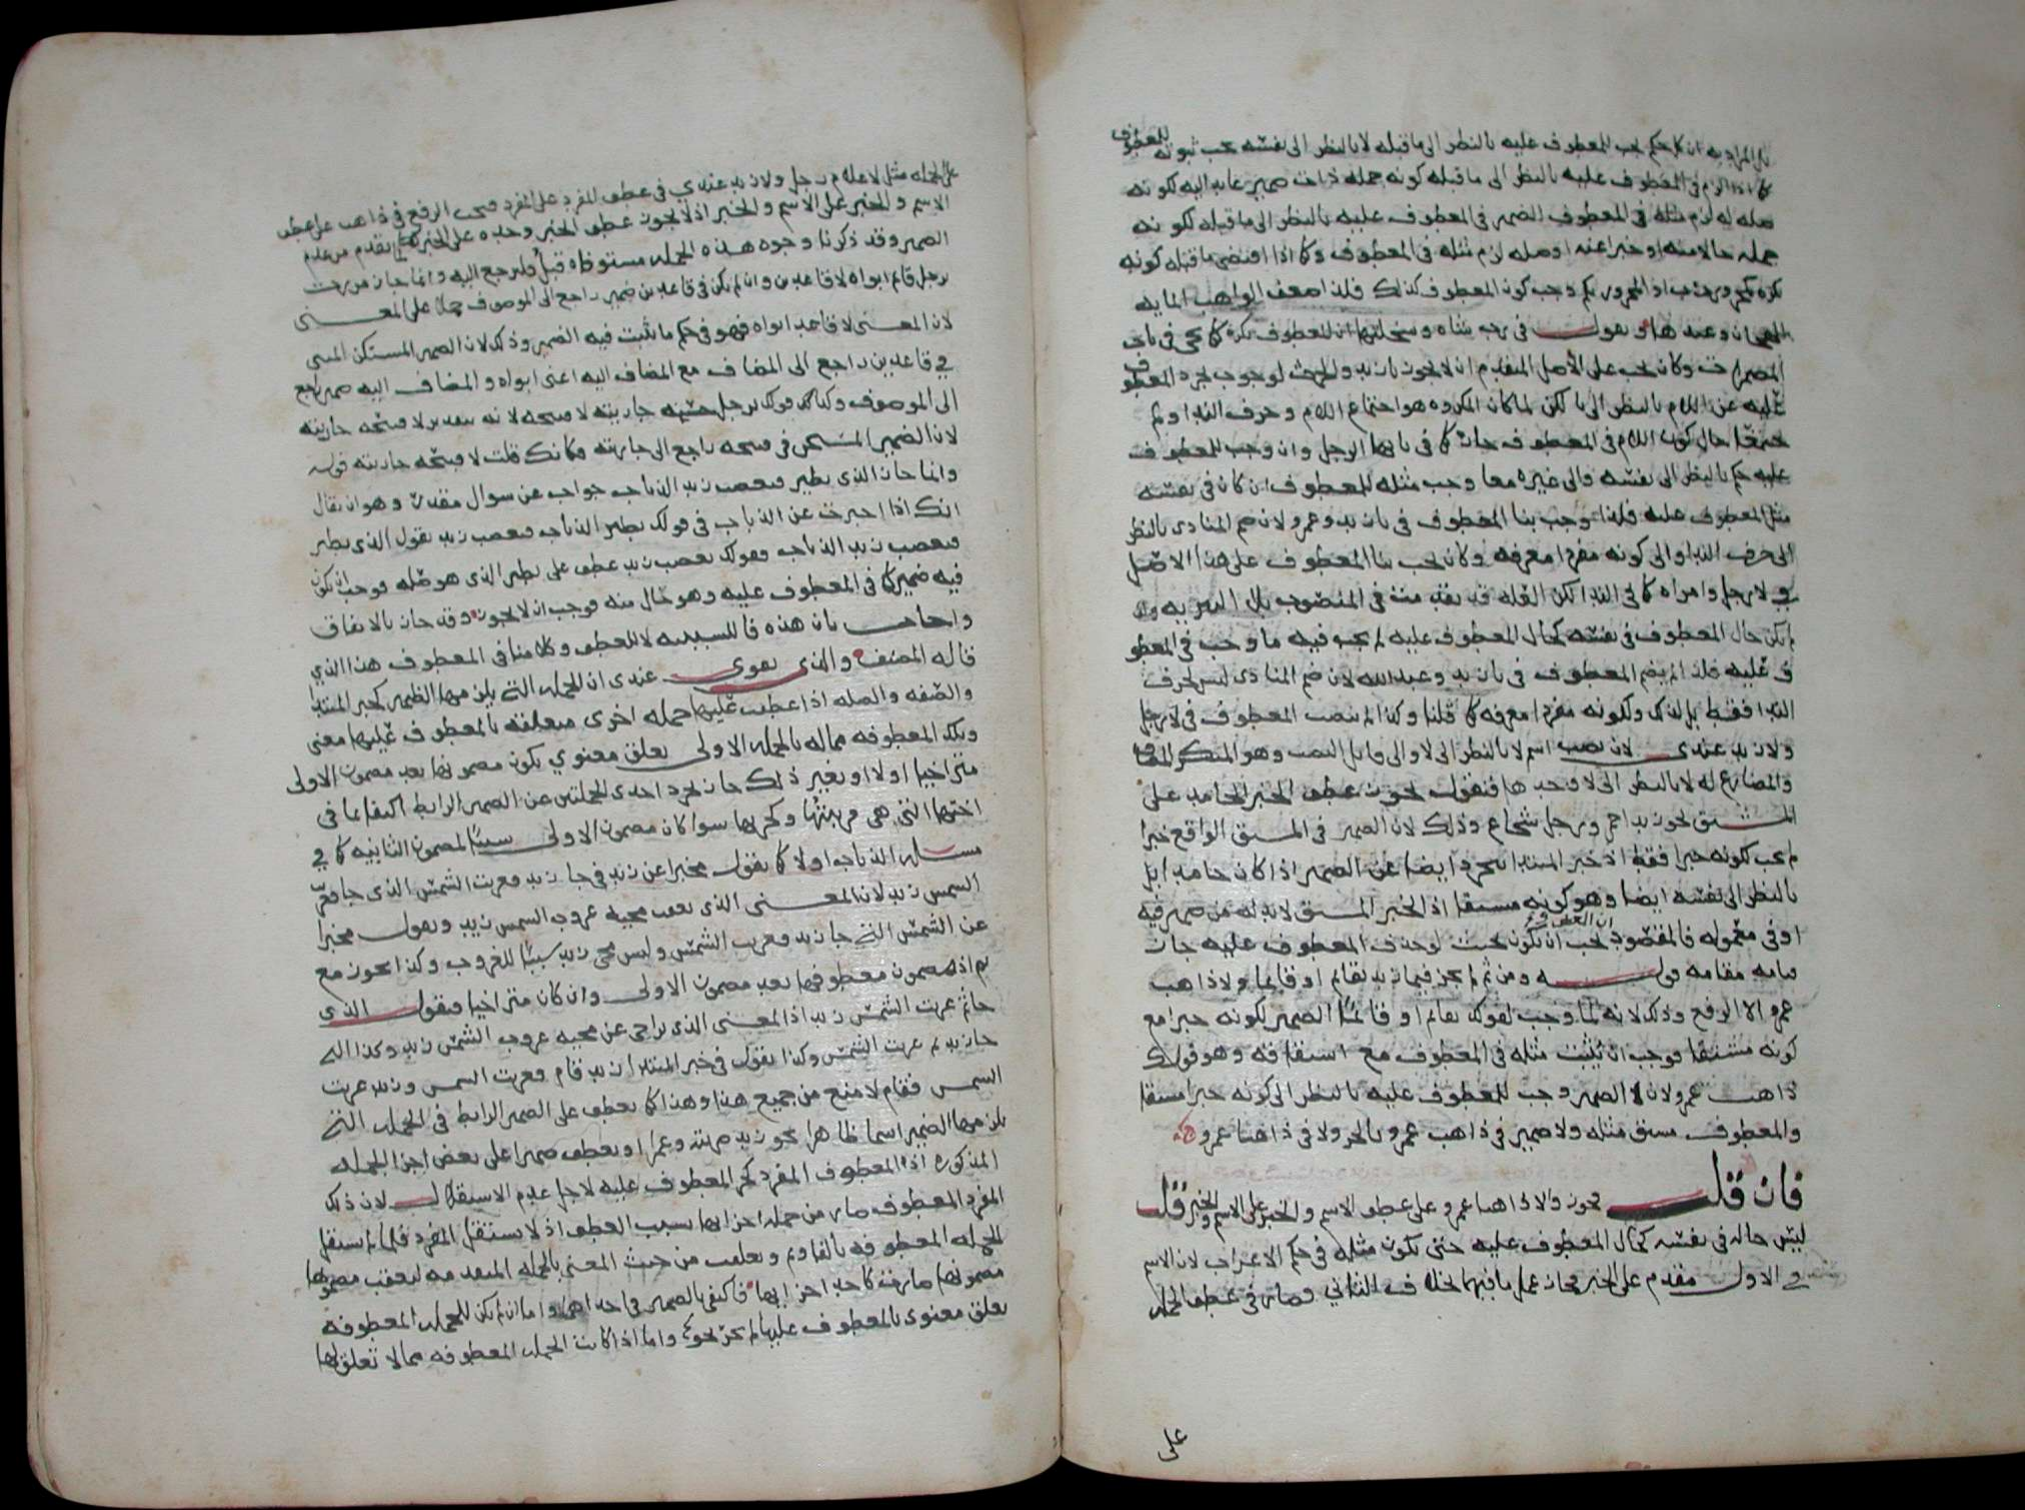 بل المراد به ان كل حكم يجب للمعطوف عليه بالنظر الى ما قبله لا بالنظر الى نفسه يجب ثبوته للمعطوف
كما اذا لزم في المعطوف عليه بالنظر الى ما قبله كونه جملة ذات ضمير عايد اليه لكونه
صله له لزم مثله في المعطوف الضمير في المعطوف عليه بالنظر الى ما قبله لكونه
جملة حالا منه او خبرا عنه او صله لزم مثله في المعطوف وكذا اذا اقتضى ما قبله كونه
نكره كمجرور رب اذ المجرور بكم وجب كون المعطوف كذلك فلذا ضعف الواهب الماية
الهجان وعبدها ونقول في رب شاه وسخلتها ان المعطوف نكرة كما يجي في باب
المضمرات وكان يجب على الاصل المتقدم ان لا يجوز يا زيد والحرث لوجوب تجرد المعطوف
عليه عن اللام بالنظر الى يا لكن لما كان المكروه هو اجتماع اللام وحرف الندا ولم
يجتمعا حال كون اللام في المعطوف جاز كما في يا ايها الرجل وان وجب للمعطوف
عليه حكم بالنظر الى نفسه والى غيره معا وجب مثله للمعطوف ان كان في نفسه
مثل المعطوف عليه فلذا وجب بنا المعطوف في يا زيد وعمرو لان ضم المنادى بالنظر
الى حرف الندا والى كونه مفردا معرفه وكان يجب بنا المعطوف على هذا الاصل
في لا رجل وامراه كما في الندا لكن العله قد تقدمت في المنصوب بلا التبريه وان
لم يكن حال المعطوف في نفسه كحال المعطوف عليه لم يجب فيه ما وجب في المعطو
ف عليه فلذا لم يضم المعطوف في يا زيد وعبد الله لان ضم المنادى ليس لحرف
الندا فقط بل لذلك ولكونه مفردا معرفه كما قلنا وكذا لم ينصب المعطوف في لا رجل
ولا زيد عندي لان نصب اسم لا بالنظر الى لا والى قابل النصب وهو المنكر المضاف
والمضارع له لا بالنظر الى لا وحدها فنقول يجوز عطف الخبر الجامد على
المشتق نحو زيد احمر ورجل شجاع وذلك لان الضمير في المشتق الواقع خبرا
لم يجب لكونه خبرا فقط اذ خبر المبتدا يتجرد ايضا عن الضمير اذا كان جامدا بل
بالنظر الى نفسه ايضا وهو كونه مشتقا اذ الخبر المشتق لا بد له من ضمير فيه
او في معموله فالمقصود ان المعطوف يجب ان يكون بحيث لو حذف المعطوف عليه جاز
قيامه مقامه قوله ومن ثم لم يجز في ما زيد بقائم او قايما ولا ذاهب
عمرو الا الرفع وذلك لانه لما وجب لقولك بقائم او قائما الضمير لكونه خبرا مع
كونه مشتقا فوجب ان يثبت مثله في المعطوف مع اشتقاقه وهو قولك
ذاهب عمرو لان الضمير وجب للمعطوف عليه بالنظر الى كونه خبرا مشتقا
والمعطوف مشتق مثله ولا ضمير في ذاهب عمرو بالجر ولا في ذاهبا عمرو
فان قلت يجوز ولا ذاهبا عمرو على عطف الاسم والخبر على الاسم والخبر قلت
ليس حاله في نفسه كحال المعطوف عليه حتى يكون مثله في حكم الاعراب لان الاسم
في الاول مقدم على الخبر فجاز عمل ما فيهما بخلاف الثاني وصار في عطف الجملة
على
على الجملة مثل لا غلام رجل ولا زيد عندي في عطف المفرد على المفرد فيجب الرفع في ذاهب على عطف
الاسم والخبر على الاسم والخبر اذ لا يجوز عطف الخبر وحده على الخبر لما تقدم من عدم
الضمير وقد ذكرنا وجوه هذه الجملة مستوفاه قبل فليرجع اليه وانما جاز مررت
برجل قائم ابواه لا قاعدين وان لم يكن في قاعدين ضمير راجع الى الموصوف حملا على المعنى
لان المعنى لا قاعد ابواه فهو في حكم ما ثبت فيه الضمير وذلك لان الضمير المستكن المثنى
في قاعدين راجع الى المضاف مع المضاف اليه اعنى ابواه والمضاف اليه ضمير راجع
الى الموصوف وكذلك قولك برجل حسنة جاريته لا قبيحه لانه بتقدير لا قبيحه جاريته
لان الضمير المستكن في قبيحه راجع الى جاريته فكانك قلت لا قبيحه جاريته قوله
وانما جاز الذي يطير فيغضب زيد الذباب جواب عن سوال مقدر وهو ان يقال
انك اذا اخبرت عن الذباب في قولك يطير الذباب فيغضب زيد تقول الذي يطير
فيغضب زيد الذباب فقولك يغضب زيد عطف على يطير الذي هو صله فوجب ان يكون
فيه ضمير كما في المعطوف عليه وهو خال منه فوجب ان لا يجوز وقد جاز بالاتفاق
واجاب بان هذه فا للسببيه لا للعطف وكلامنا في المعطوف هذا الذي
قاله المصنف والذي يقوى عندى ان الجملة التي يلزمها الضمير كخبر المبتدا
والصفه والصله اذا عطفت عليها جمله اخرى متعلقه بالمعطوف عليها معنى
وتلك المعطوفه مما له بالجملة الاولى تعلق معنوي بكون مضمونها بعد مضمون الاولى
متراخيا اولا او بغير ذلك جاز تجرد احدى الجملتين عن الضمير الرابط اكتفا بما في
اختها التي هي قرينتها وكجزيها سوا كان مضمون الاولى سببا لمضمون الثانيه كما في
مسئله الذباب اولا كما نقول مخبرا عن زيد في جا زيد فغربت الشمس الذي جا فغربت
الشمس زيد لان المعنى الذي يعقب مجيه غروب الشمس زيد ونقول مخبرا
عن الشمس التي جا زيد فغربت الشمس وليس مجي زيد سببا للغروب وكذا يجوز مع
ثم اذ مضمون معطوفها بعد مضمون الاولى وان كان متراخيا فنقول الذي
جا ثم غربت الشمس زيد اذ المعنى الذي تراخى عن مجيه غروب الشمس زيد وكذا التي
جا زيد ثم غربت الشمس وكذا نقول في خبر المبتدا زيد قام فغربت الشمس وزيد غربت
الشمس فقام لا منع من جميع هذا وهذا كما يعطف على الضمير الرابط في الجملة التي
يلزمها الضمير اسما ظاهرا نحو زيد ضربته وعمرا او يعطف ضميرا على بعض اجزا الجملة
المذكوره اذ المعطوف المفرد كجز المعطوف عليه لاجل عدم الاستقلال لان ذلك
المفرد المعطوف صار من جملة اجزايها بسبب العطف اذ لا يستقل المفرد فلما لم يستقل
الجملة المعطوفه بالفا وثم وتعلقت من حيث المعنى بالجملة المتقدمه لتعقب مضمونها
مضمونها صارت كاحد اجزايها فاكتفى بالضمير في احداهما واما ان لم يكن للجملة المعطوفه
تعلق معنوى بالمعطوف عليها لم يجز نحو واما اذا كانت الجملة المعطوفه مما لا تعلق لها